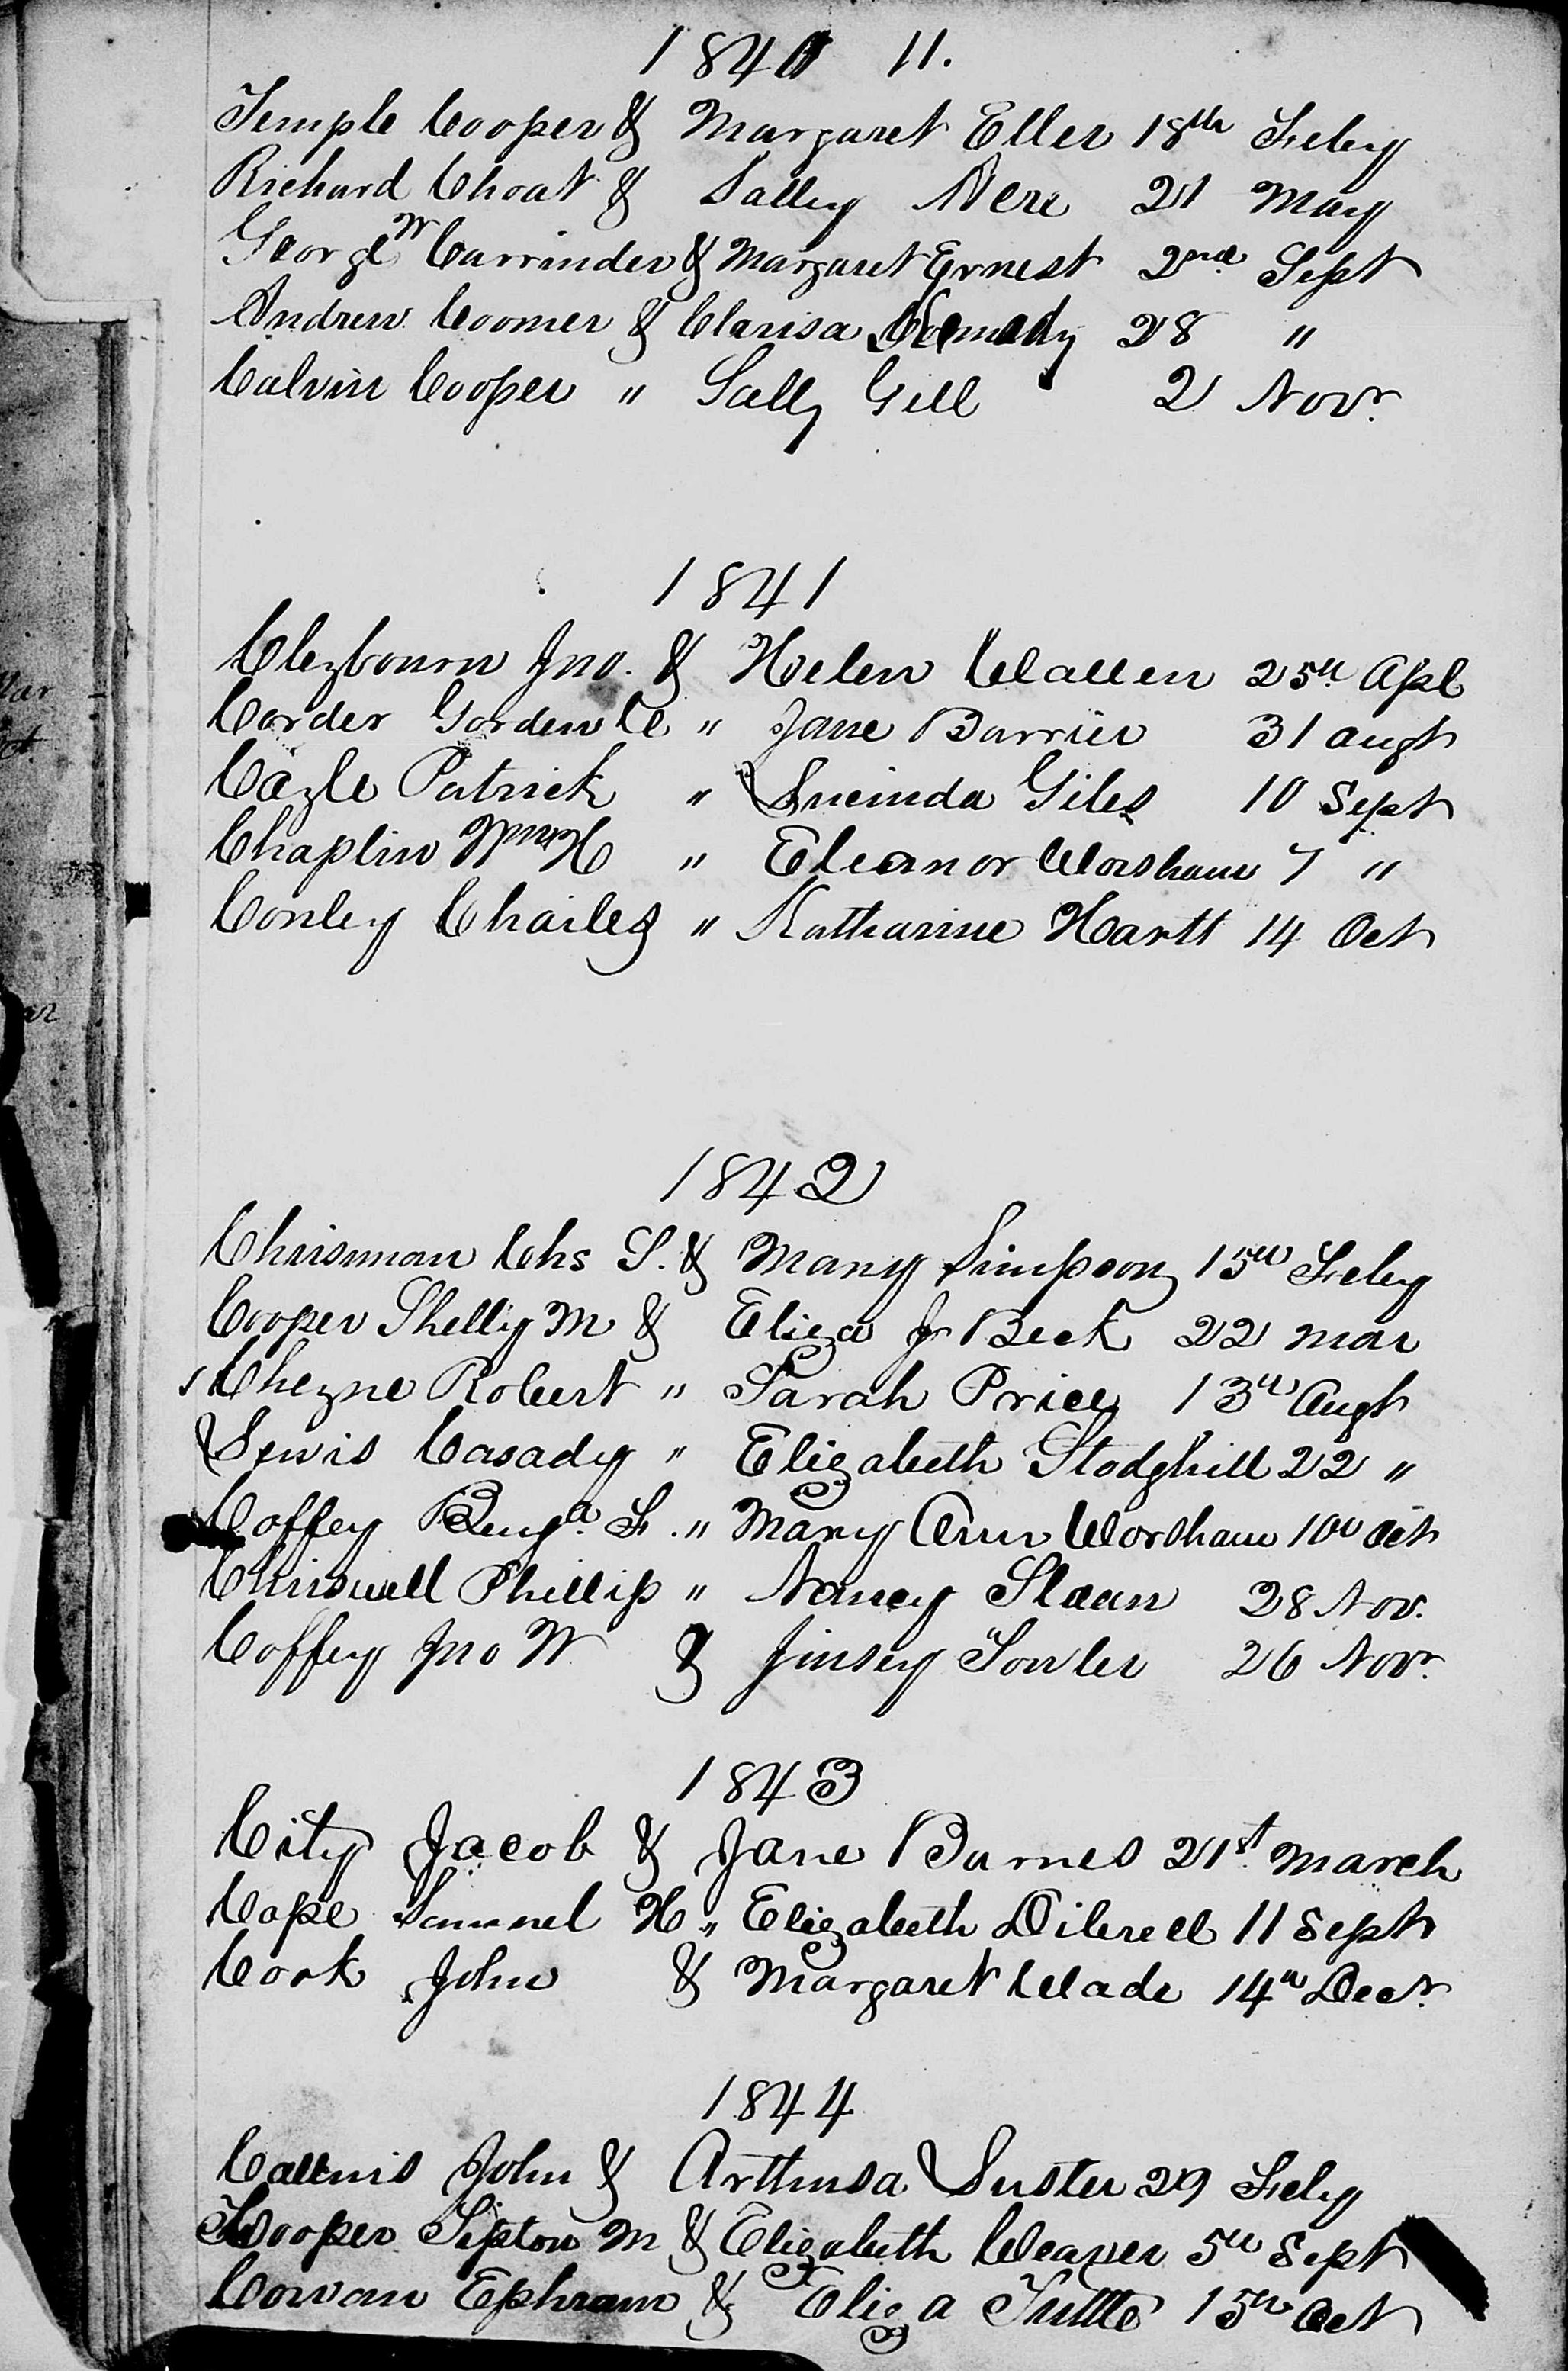 1840 11.
Temple Cooper & Margaret Eller 18th Feby
Richard Choat & Sally Vere 21 May
George W Carrinder & Margaret Ernest 2nd Sept
Andrew Coomer & Clarisa 28 "
Calvin Cooper " Sally Gill 2 Novr.
1841
Clezbourn Jno. & Helen Wallen 25th Apl
Corder Gorden C " Jane Barrier 31 augt
Cazle Patrick " Lucinda Giles 10 Sept
Chaplin Wm H " Eleanor Worsham 7 "
Conley Charles " Katharine Hartt 14 Oct
1842
Chrisman Chs S. & Mary Simpson 15th Feby
Cooper Shelly M & Eliza J Beck 22 mar
Chezne Robert " Sarah Price 13th Augt
Lewis Casady " Elizabeth Stodghill 22 "
Coffey Benja. F. " Mary Ann Worsham 10th Oct
Chriswell Phillip " Nancy Sloan 28 Nov.
Coffey Jno W & Jinsey Fowler 26 Novr.
1843
City Jacob & Jane Barnes 21st March
Cope Samuel H " Elizabeth Dibrell 11 Sept
Cook John & Margaret Wade 14th Decr.
1844
John & Arthusa Luster 29 Feby
Cooper Tipton M & Elizabeth Weaver 5th Sept
Cowan Ephram & Eliza Tuttle 15th Oct